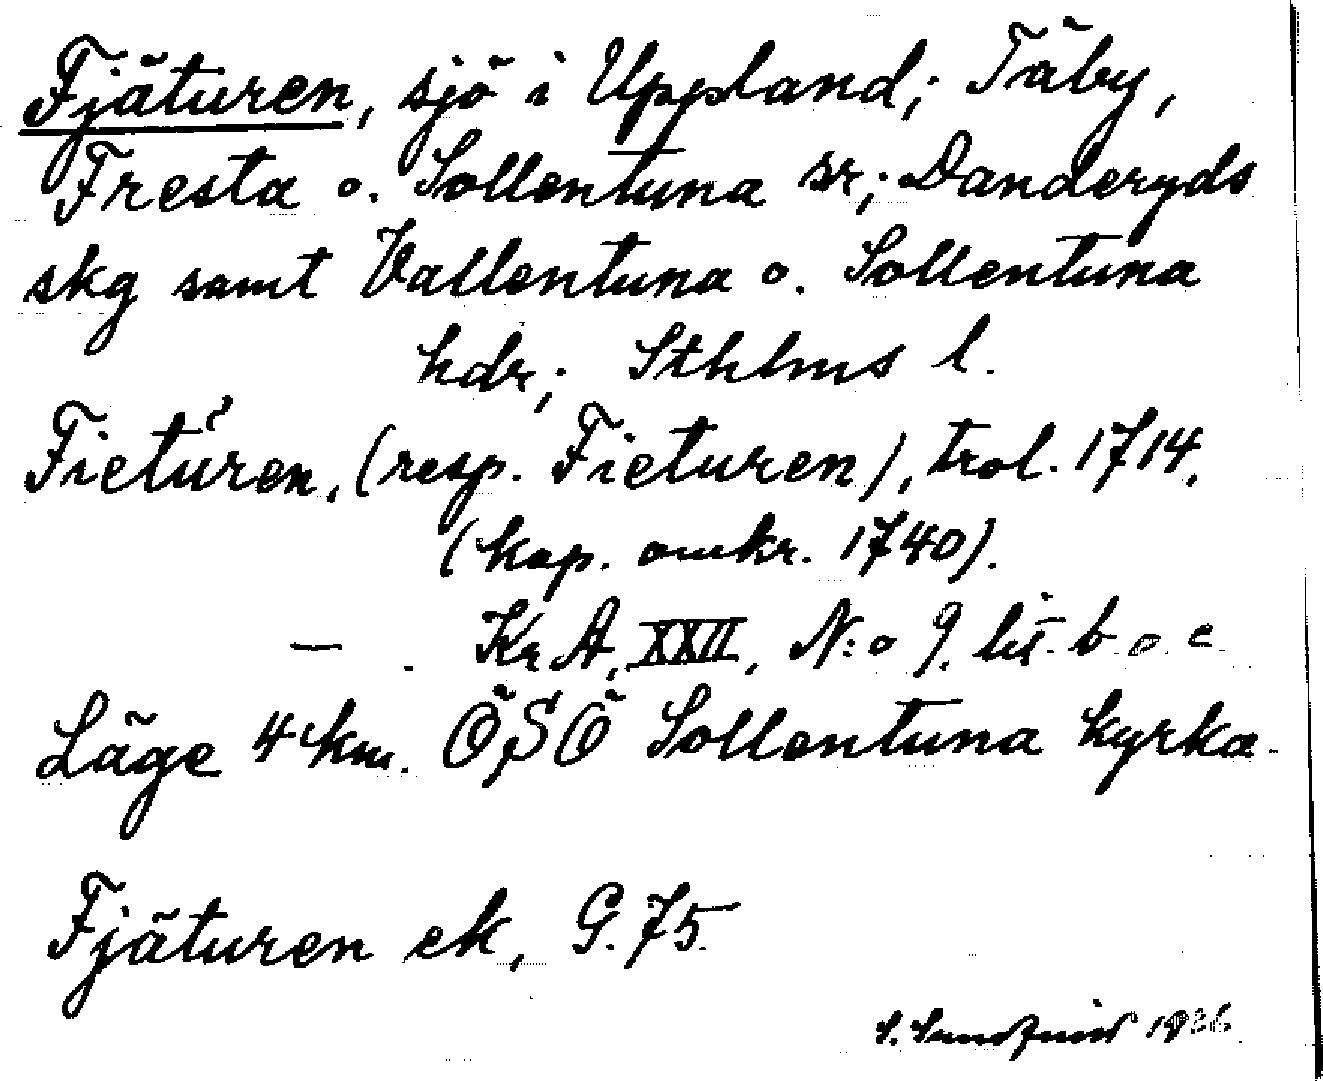 Fjäturen, sjö i Uppland; Täby,
Fresta o. Sollentuna sr; Danderyds
skg samt Vallentuna o. Sollentuna
hdr; Sthlms l.
Fietŭren, (resp. Fieturen), trol. 1714,
(kop. omkr. 1740).
— . Kr A, XXII, N:o 9. lit. b o c
Läge 4 km. ÖSÖ Sollentuna kyrka.
Fjäturen ek, G. 75.
S. Sundquist 1936